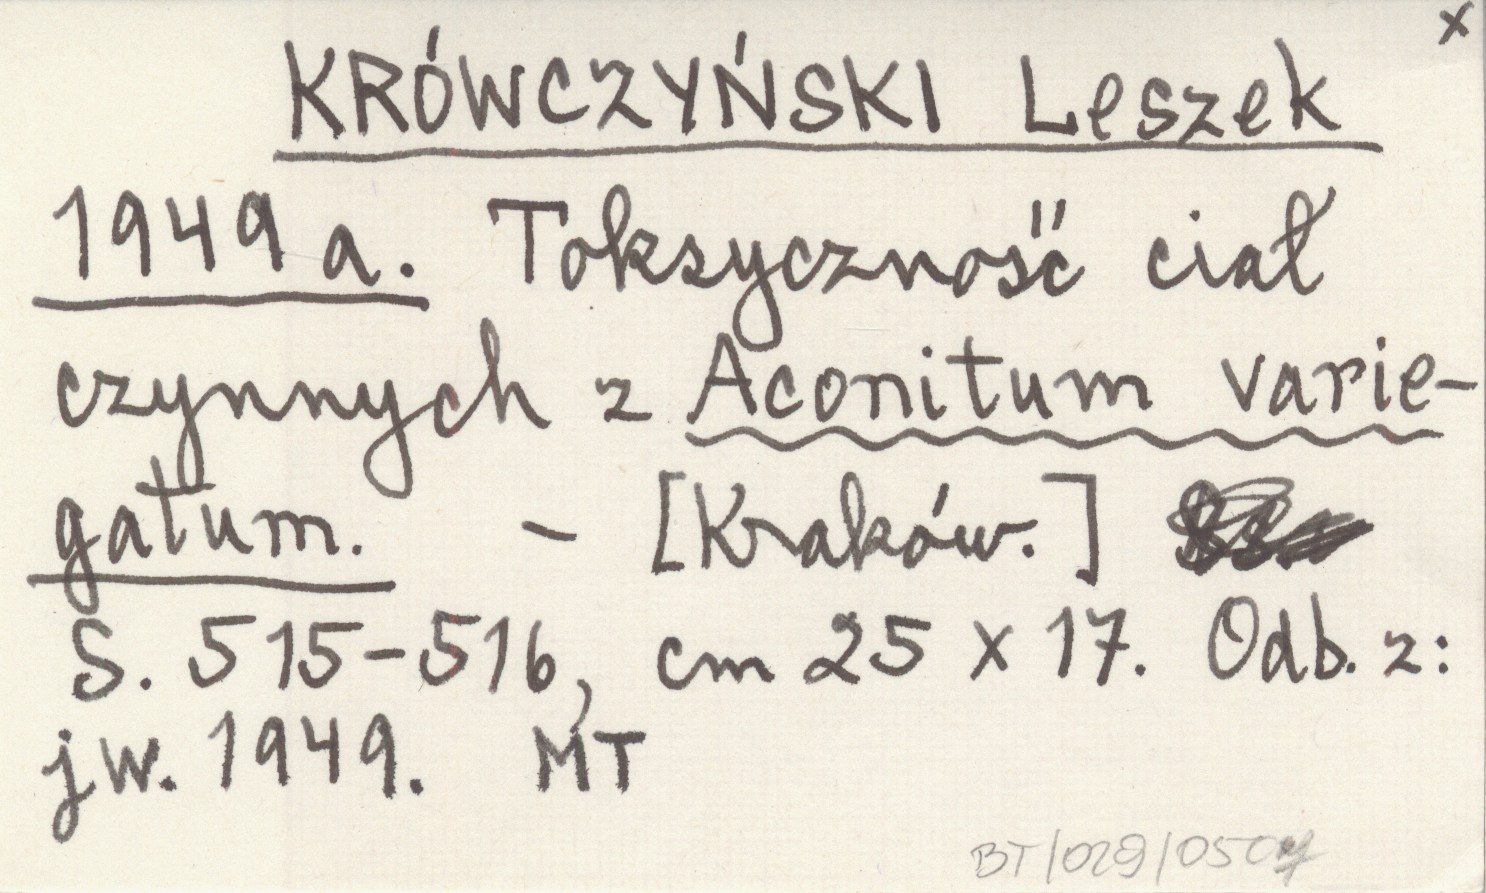 x
KRÓWCZYŃSKI Leszek
1949 a. Toksyczność ciał
czynnych z Aconitum varie-
gatum. - [Kraków.]
S. 515-516, cm 25 x 17. Odb. z:
jw. 1949. MT